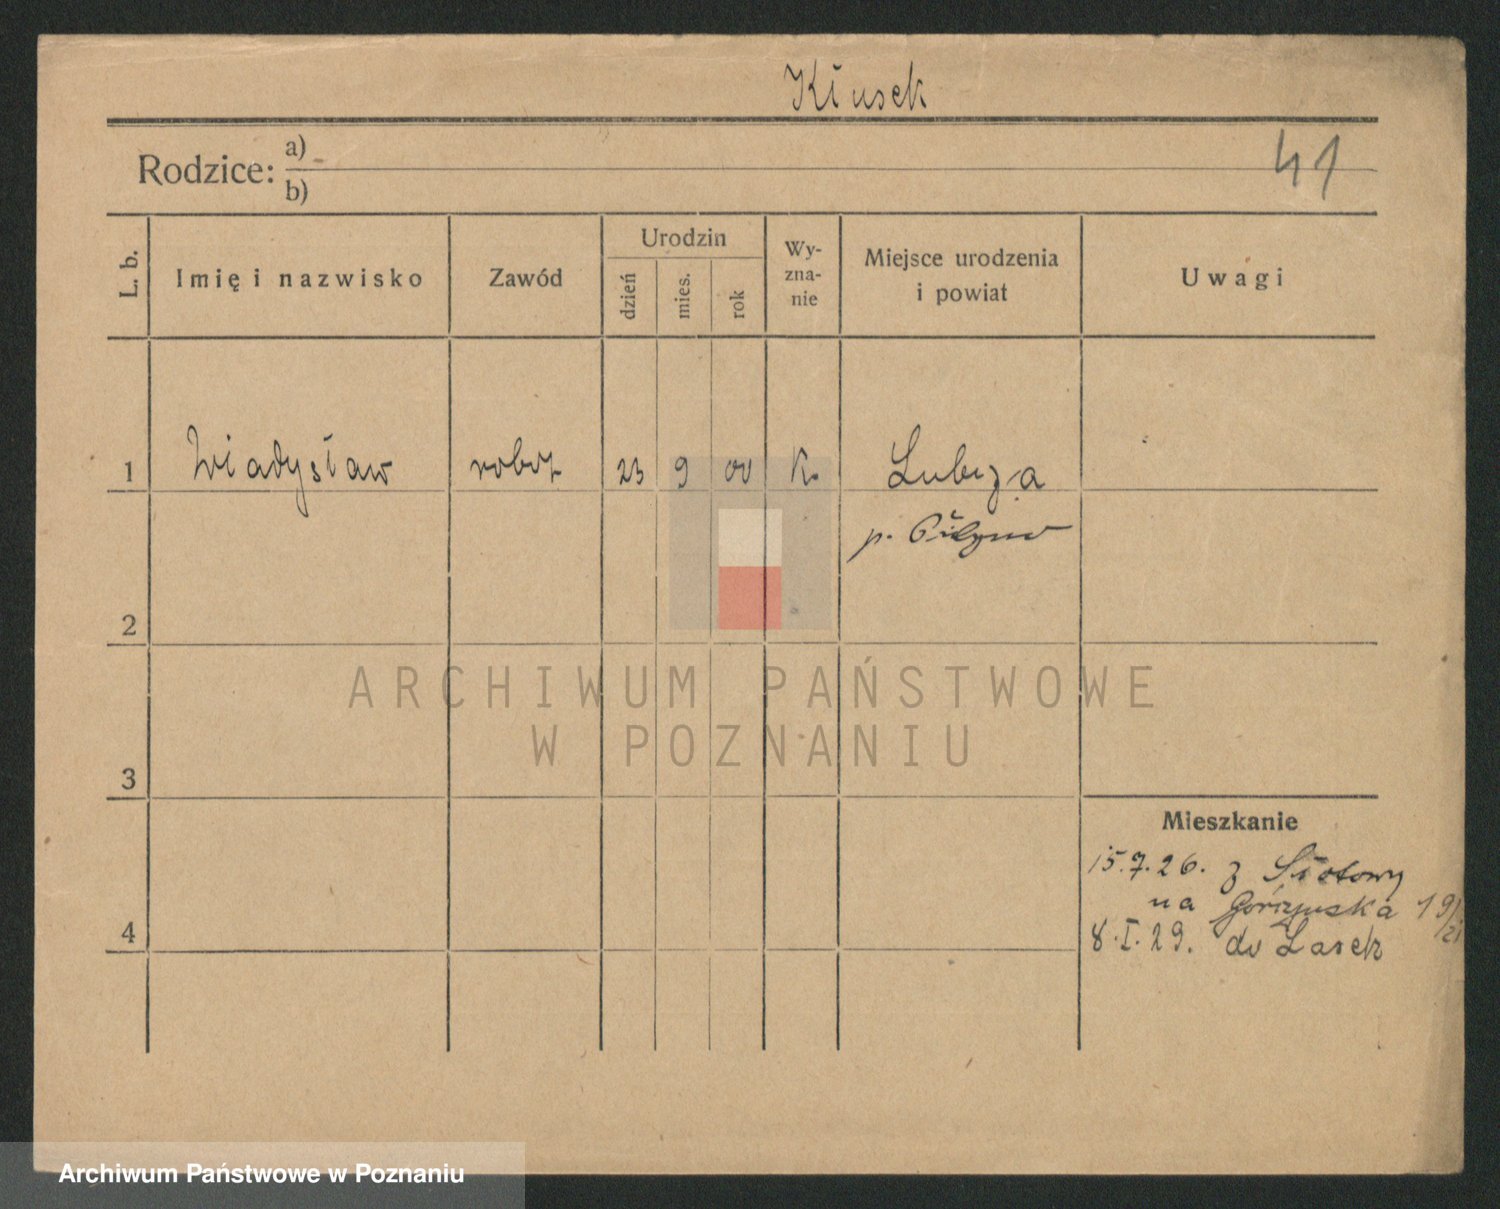 Kłusek
41
Rodzice: a)
b)
L. b.
Imię i nazwisko
Zawód
Urodzin
dzień
mies.
rok
Wy-
zna-
nie
Miejsce urodzenia
i powiat
Uwagi
1 Władysław robot 23 9 00 K. Lubcza
p. Pilzno
2
3
4
Mieszkanie
15.7.26. z Słotowy
na
8.I.29. do Lasek
ARCHIWUM PAŃSTWOWE
W POZNANIU
Archiwum Państwowe w Poznaniu